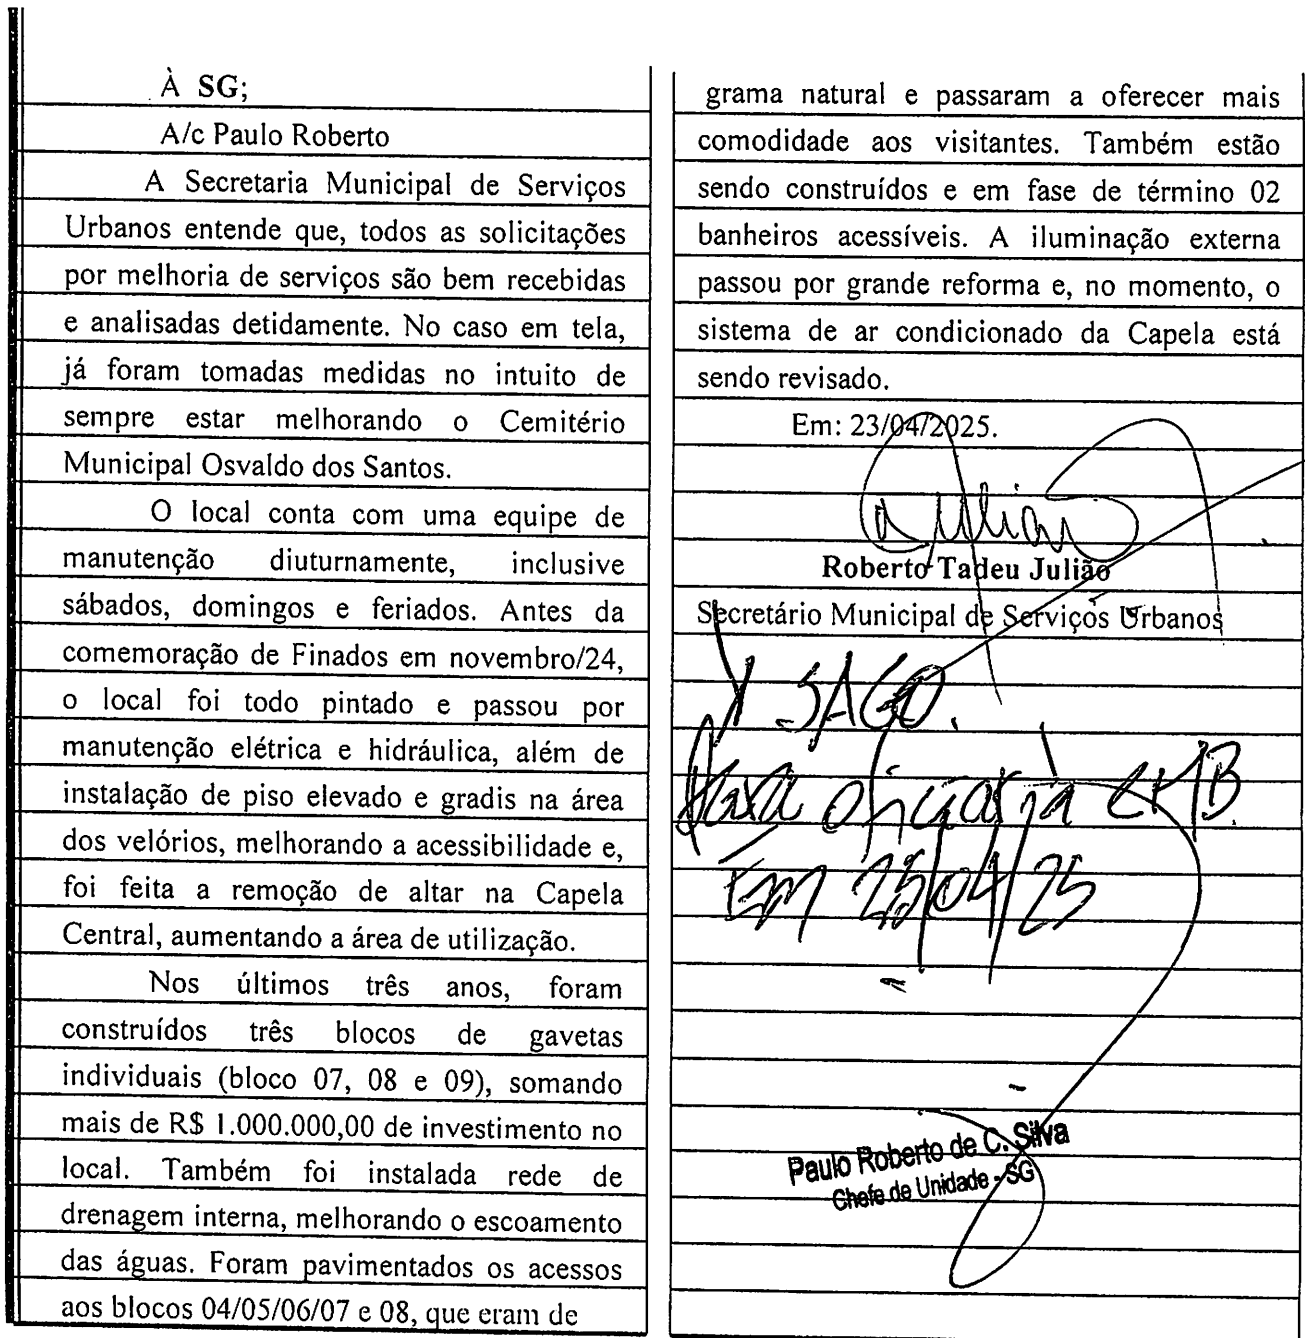 À SG;
A/c Paulo Roberto
A Secretaria Municipal de Serviços
Urbanos entende que, todos as solicitações
por melhoria de serviços são bem recebidas
e analisadas detidamente. No caso em tela,
já foram tomadas medidas no intuito de
sempre estar melhorando o Cemitério
Municipal Osvaldo dos Santos.
O local conta com uma equipe de
manutenção diuturnamente, inclusive
sábados, domingos e feriados. Antes da
comemoração de Finados em novembro/24,
o local foi todo pintado e passou por
manutenção elétrica e hidráulica, além de
instalação de piso elevado e gradis na área
dos velórios, melhorando a acessibilidade e,
foi feita a remoção de altar na Capela
Central, aumentando a área de utilização.
Nos últimos três anos, foram
construídos três blocos de gavetas
individuais (bloco 07, 08 e 09), somando
mais de R$ 1.000.000,00 de investimento no
local. Também foi instalada rede de
drenagem interna, melhorando o escoamento
das águas. Foram pavimentados os acessos
aos blocos 04/05/06/07 e 08, que eram de
grama natural e passaram a oferecer mais
comodidade aos visitantes. Também estão
sendo construídos e em fase de término 02
banheiros acessíveis. A iluminação externa
passou por grande reforma e, no momento, o
sistema de ar condicionado da Capela está
sendo revisado.
Em: 23/04/2025.
Roberto Tadeu Julião
Secretário Municipal de Serviços Urbanos
À SAGO.
Para oficiar à CMB.
Em 25/04/25
Paulo Roberto de C. Silva
Chefe de Unidade - SG